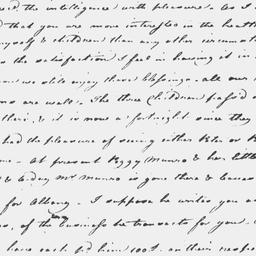 the intelligence with pleasure. as I
that you are more interested in the health
myself & children than any other circumsta
the satisfaction I feel in having it in
we still enjoy these blessings. all our
are well. The three Children pass'd
& it is now a fortnight since they
had the pleasure of seeing either Peter or
At present Peggy Munro & her little
& to day Mr Munro is gone there &
for Albany. I suppose he writes you
of the business he transacts for you.
have each p'd him 100£. on their